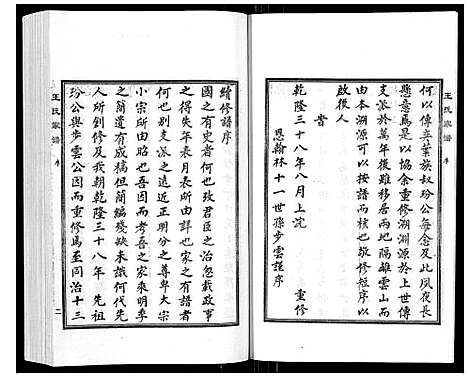 王氏家譜
序
何以傳奕葉族叔玢公每念及此夙夜長
懸意焉是以協余重修溯淵源於上世傳
支派於萬年後雖移居兩地遠隔雲山而
由本溯源可以按譜而核也敬修短序以
啟後人
時
乾隆三十八年八月上浣
重修
恩翰林十一世孫步雲謹序
續修譜序
國之有史者何也攷君臣之治忽載政事
之得失年表月表所由詳也家之有譜者
何也別支派之遠近正明分之尊卑大宗
小宗所由昭也吾因而考吾之家乘明季
之簡遺有成稿但簡編殘缺未識何代先
人所創修及我朝乾隆三十八年 先祖
玢公與步雲公因而重修焉至同治十三
王氏家譜
序
二